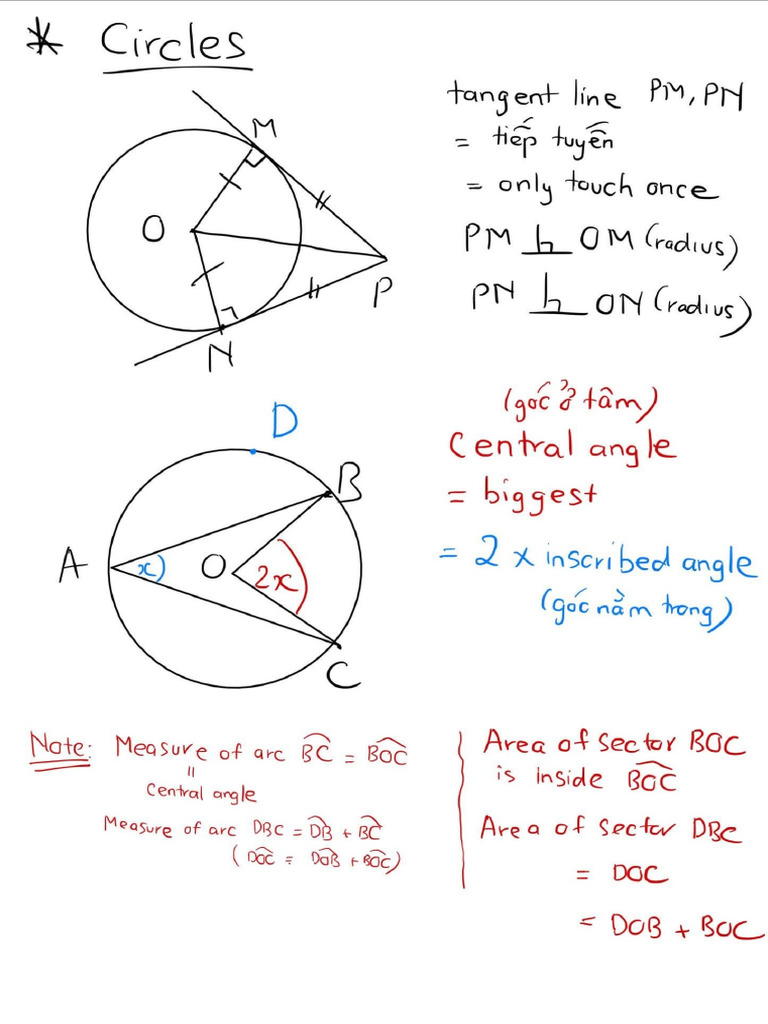 * Circles
tangent line PM, PN
= tiếp tuyến
= only touch once
PM ⊥ OM (radius)
PN ⊥ ON (radius)
M
O
P
N
(góc ở tâm)
Central angle
= biggest
= 2 x inscribed angle
(góc nằm trong)
D
B
A
x
O
2x
C
Note: Measure of arc B͡C = BOC^
=
Central angle
Measure of arc DBC = D͡B + B͡C
(DOC^ = DOB^ + BOC^)
Area of sector BOC
is inside BOC^
Area of sector DBC
= DOC
= DOB + BOC